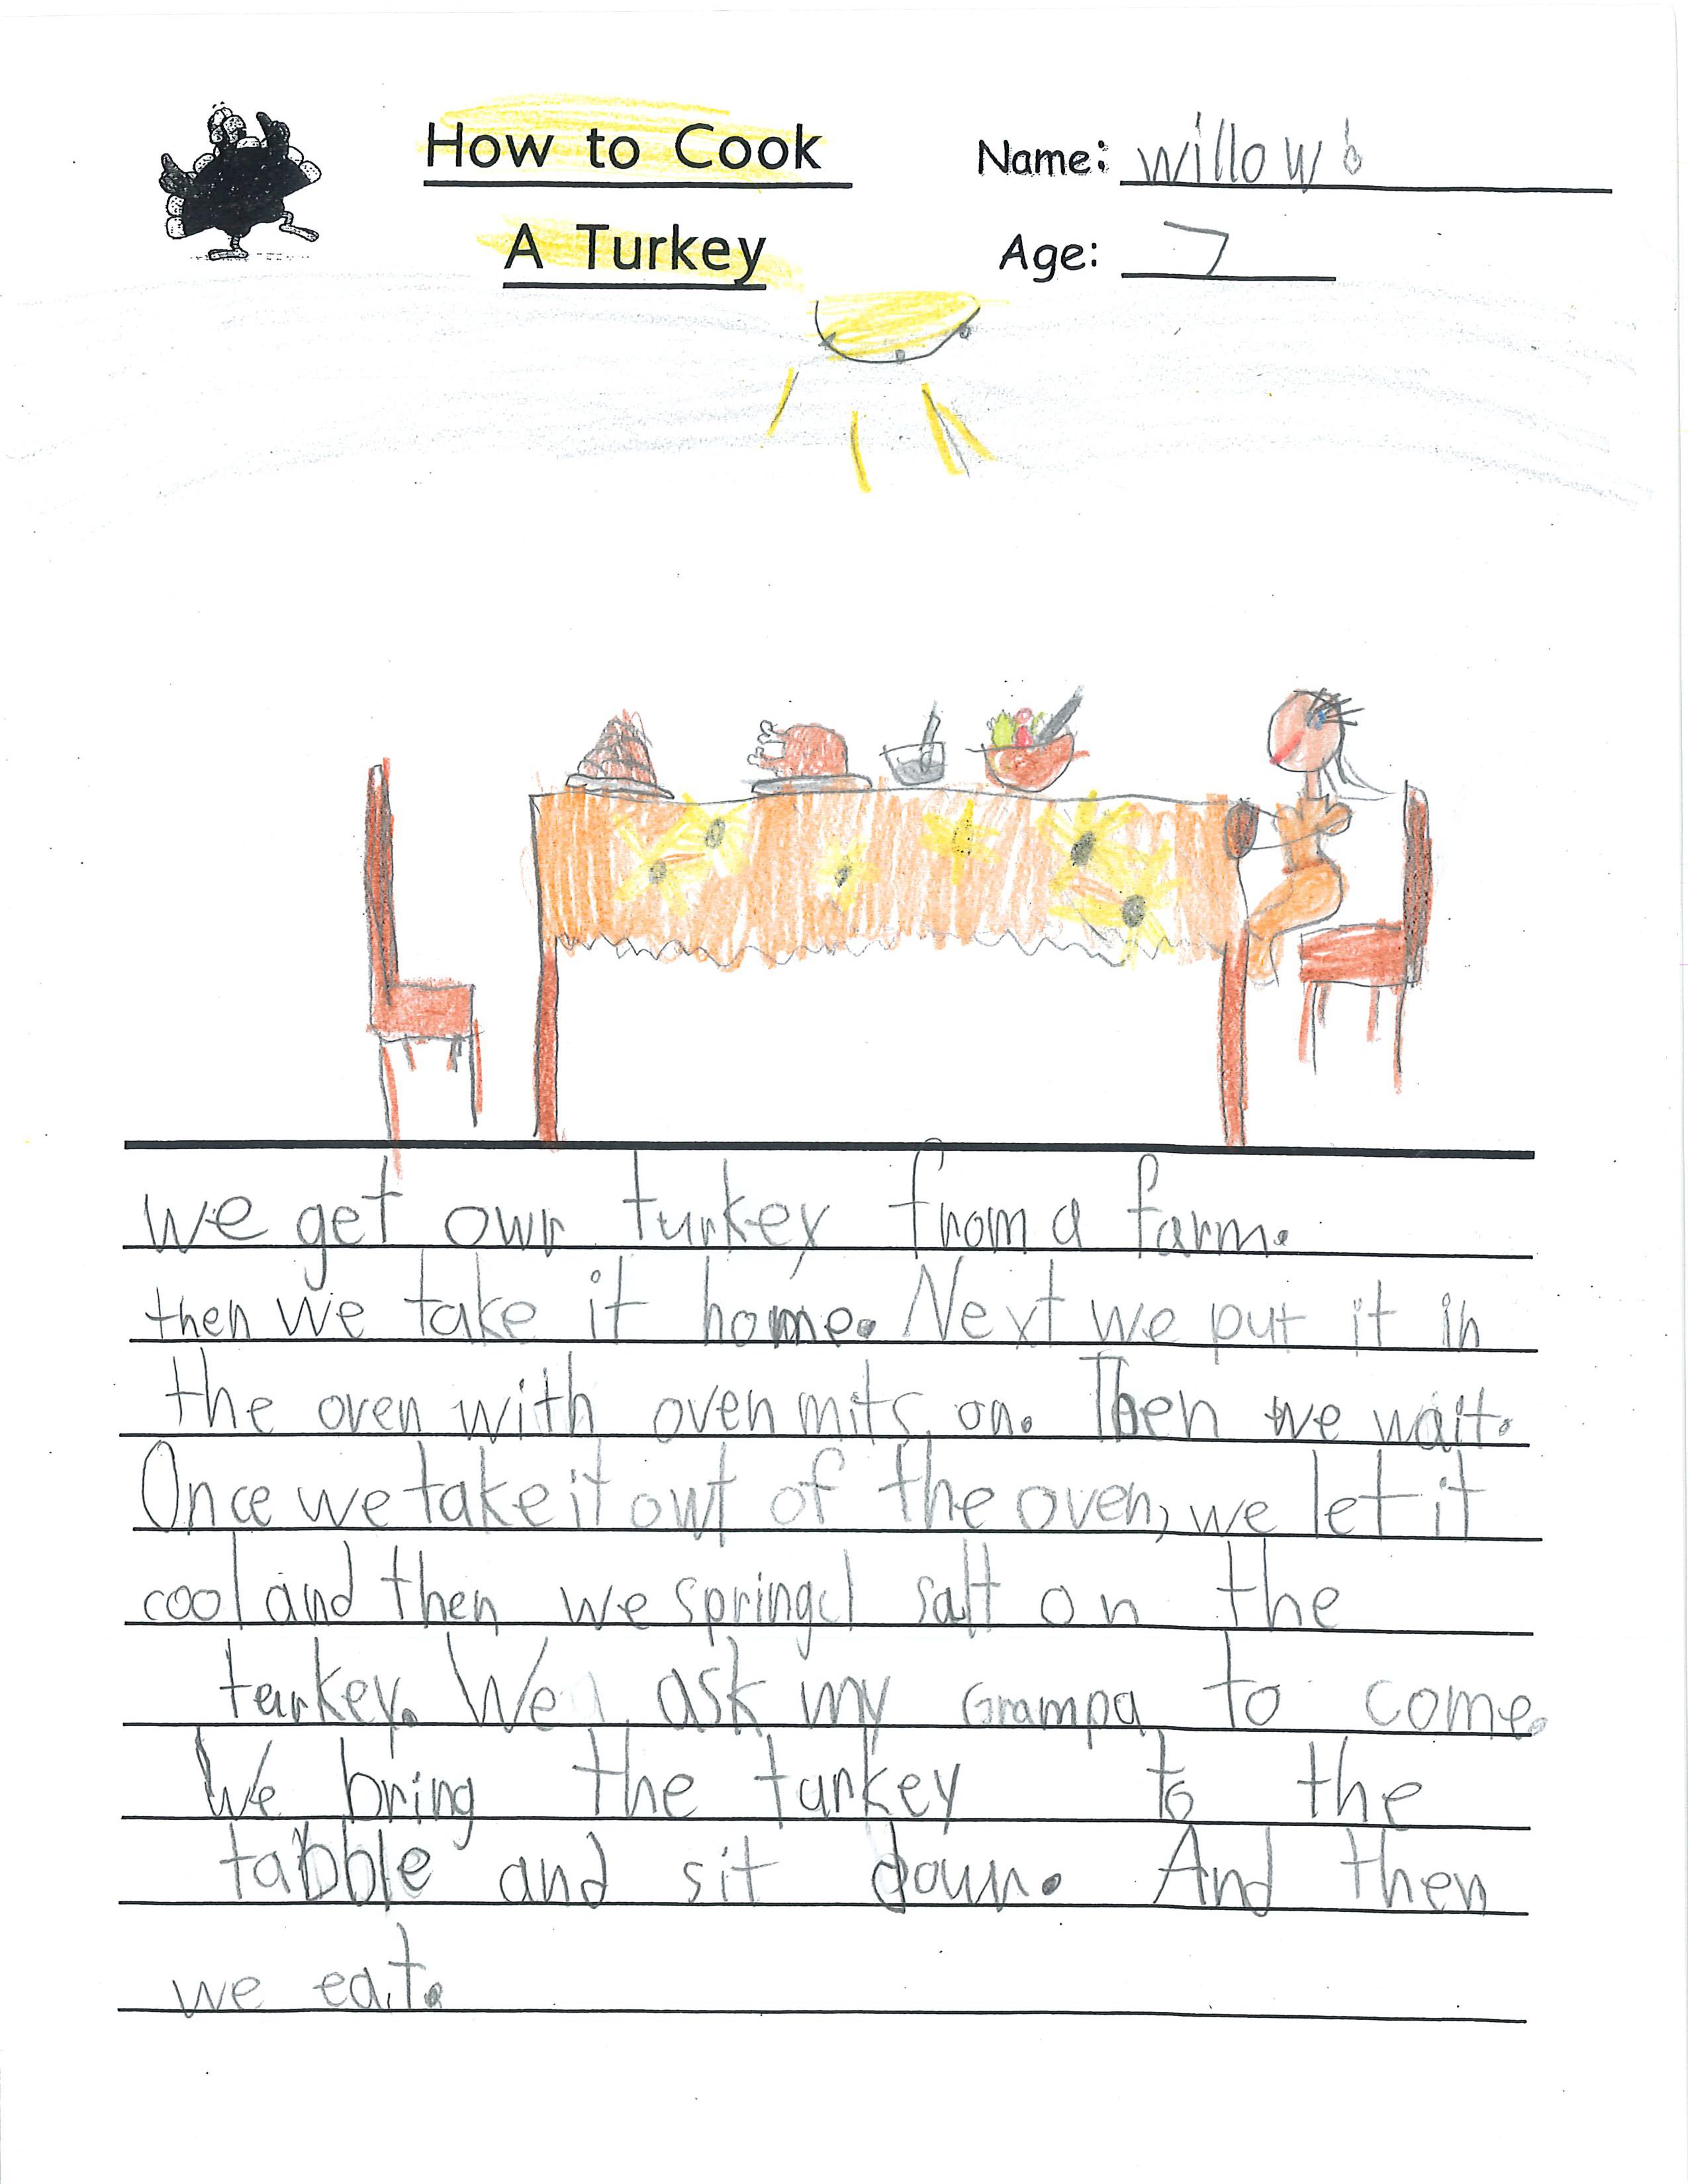 How to Cook
A Turkey
Name: willow b
Age: 7
we get owr turkey from a farm.
then we take it home. Next we put it in
the oven with oven mits on. Then we wait.
Once we take it owt of the oven, we let it
cool and then we springcl salt on the
turkey. We ask my Grampa to come.
We bring the turkey to the
tabble and sit down. And then
we eat.